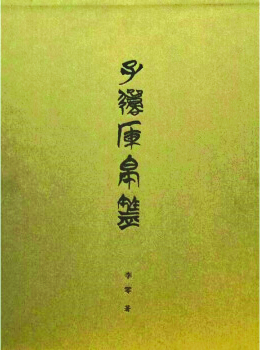 子彈庫帛書
李零 著